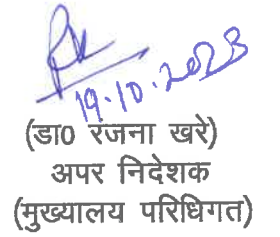 19.10.2023
(डा0 रंजना खरे)
अपर निदेशक
(मुख्यालय परिधिगत)